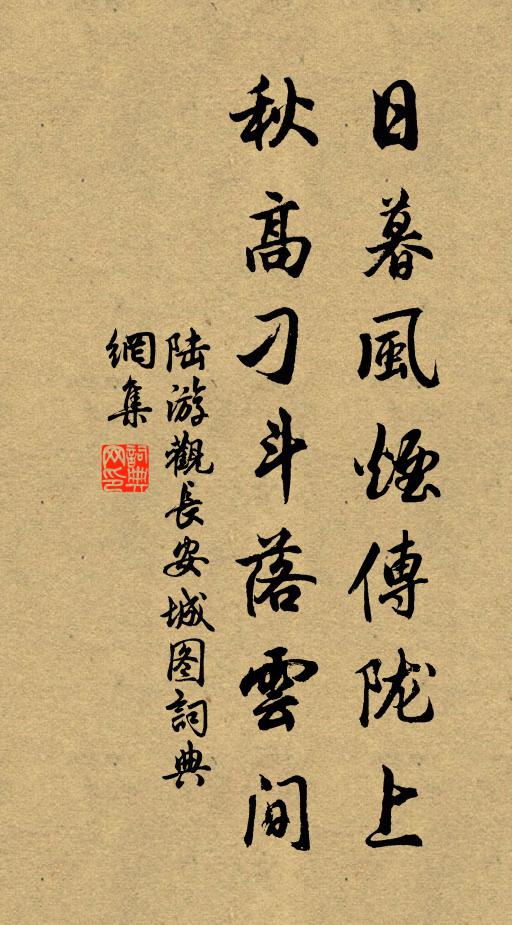 日暮風煙傳陇上
秋高刁斗落雲間
陆游觀長安城图詞典
網集
詞典网印